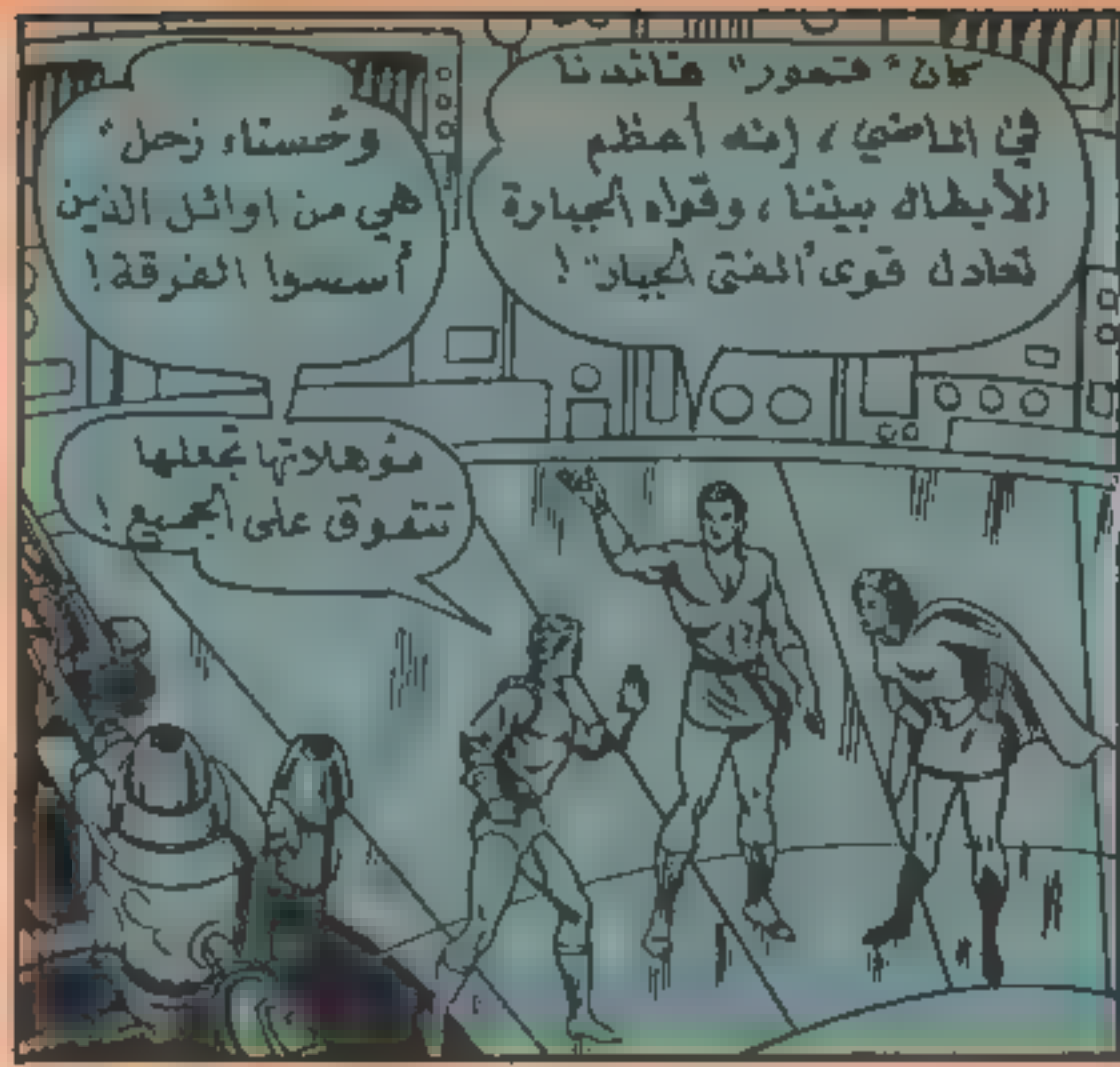 كان "فتمور" قائدنا
في الماضي، إنه أعظم
الأبطال بيننا، وقواه الجبارة
تعادل قوى "الفتى الجبار"!
وحسناء زحل"
هي من اوائل الذين
أسسوا الفرقة!
مؤهلاتها تجعلها
تتفوق على الجميع!